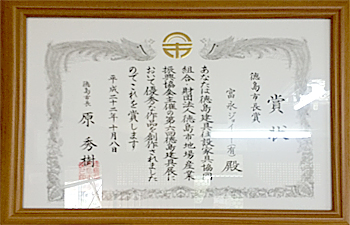 賞状
徳島市長賞
富永ジョイナー(有)殿
あなたは徳島建具仕設家具協同
組合 財団法人徳島市地場産業
振興協会主催の第六回徳島建具展に
おいて優秀な作品を創作されました
のでこれを賞します
平成二十二年十月八日
徳島市長
原秀樹